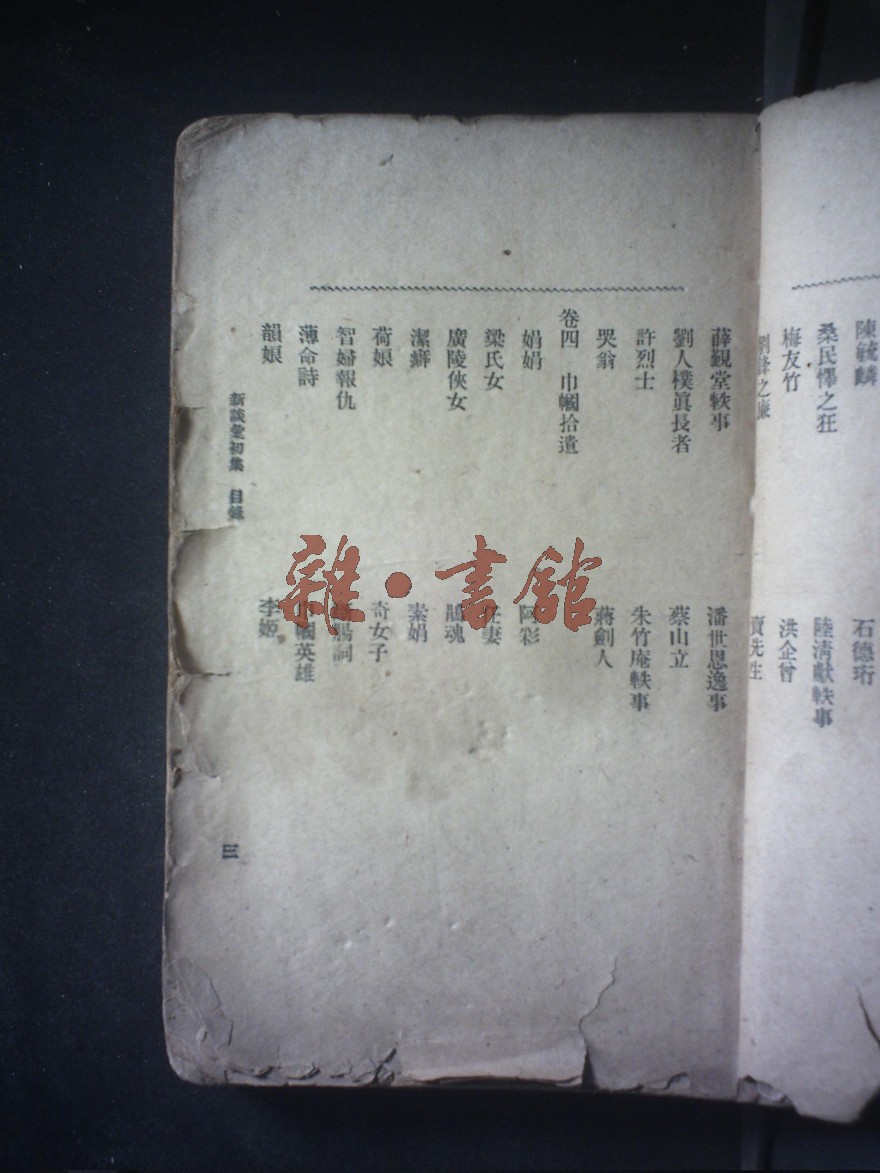 陳毓麟
石德珩
桑民懌之狂
陸清獻軼事
梅友竹
洪企曾
之廉
賣先生
薛觐堂軼事
潘世恩逸事
劉人樸眞長者
蔡山立
許烈士
朱竹庵軼事
哭翁
蔣劍人
卷四 巾幗拾遺
娟娟
阿彩
梁氏女
任妻
廣陵俠女
鵑魂
潔癖
素娟
荷娘
奇女子
智婦報仇
腸詞
薄命詩
巾幗英雄
韻娘
李姬
新談彙初集 目錄
三
雜·書館